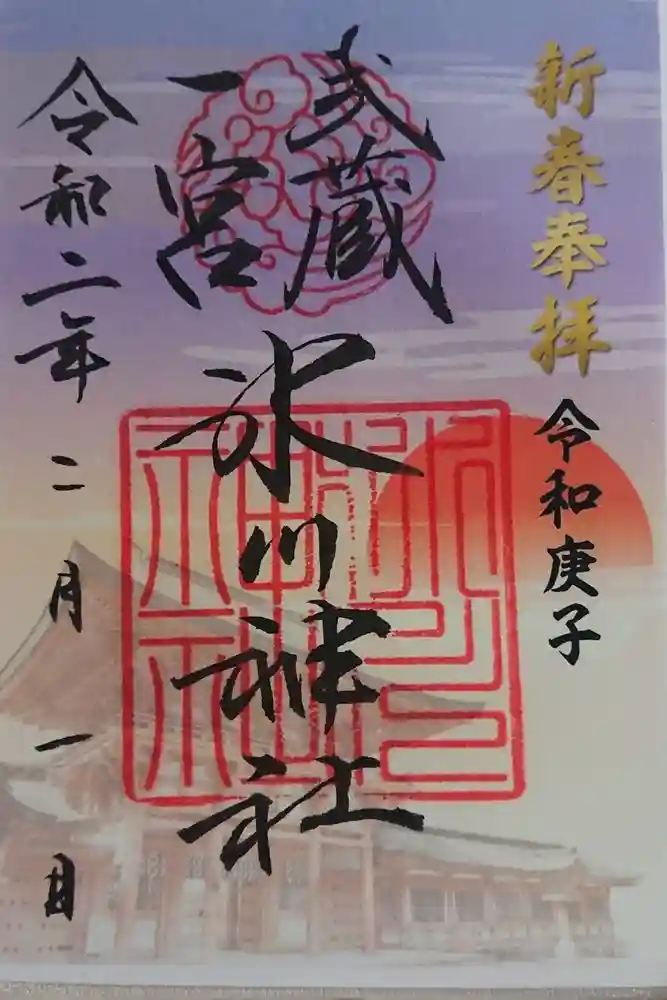 新春奉拝
令和庚子
武蔵
一宮
氷川神社
令和二年二月一日
氷川
神社